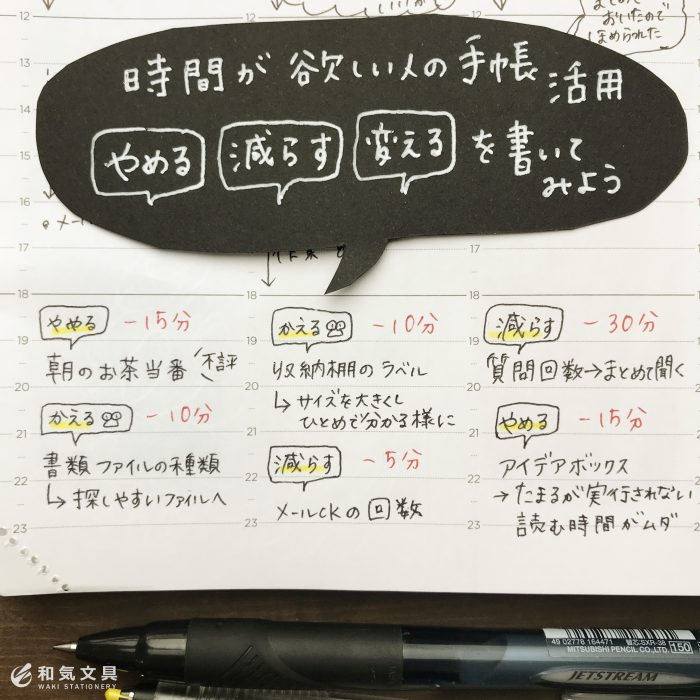 まとめて
おいたので
ほめられた
時間が欲しい人の手帳活用
やめる 減らす 変える を書いて
みよう
12
13
14
15
16
17
18
19
20
21
22
23
12
13
14
15
16
17
18
19
20
21
22
23
17
18
19
20
21
22
23
やめる -15分
朝のお茶当番 不評
かえる -10分
書類ファイルの種類
↳ 探しやすいファイルへ
かえる -10分
収納棚のラベル
↳ サイズを大きくし
ひとめで分かる様に
減らす -5分
メールCKの回数
減らす -30分
質問回数→まとめて聞く
やめる -15分
アイデアボックス
→たまるが実行されない
読む時間がムダ
49 02778 164471 替芯・SXR-38
MITSUBISHI PENCIL CO.,LTD. 150
JETSTREAM
和気文具
WAKI STATIONERY